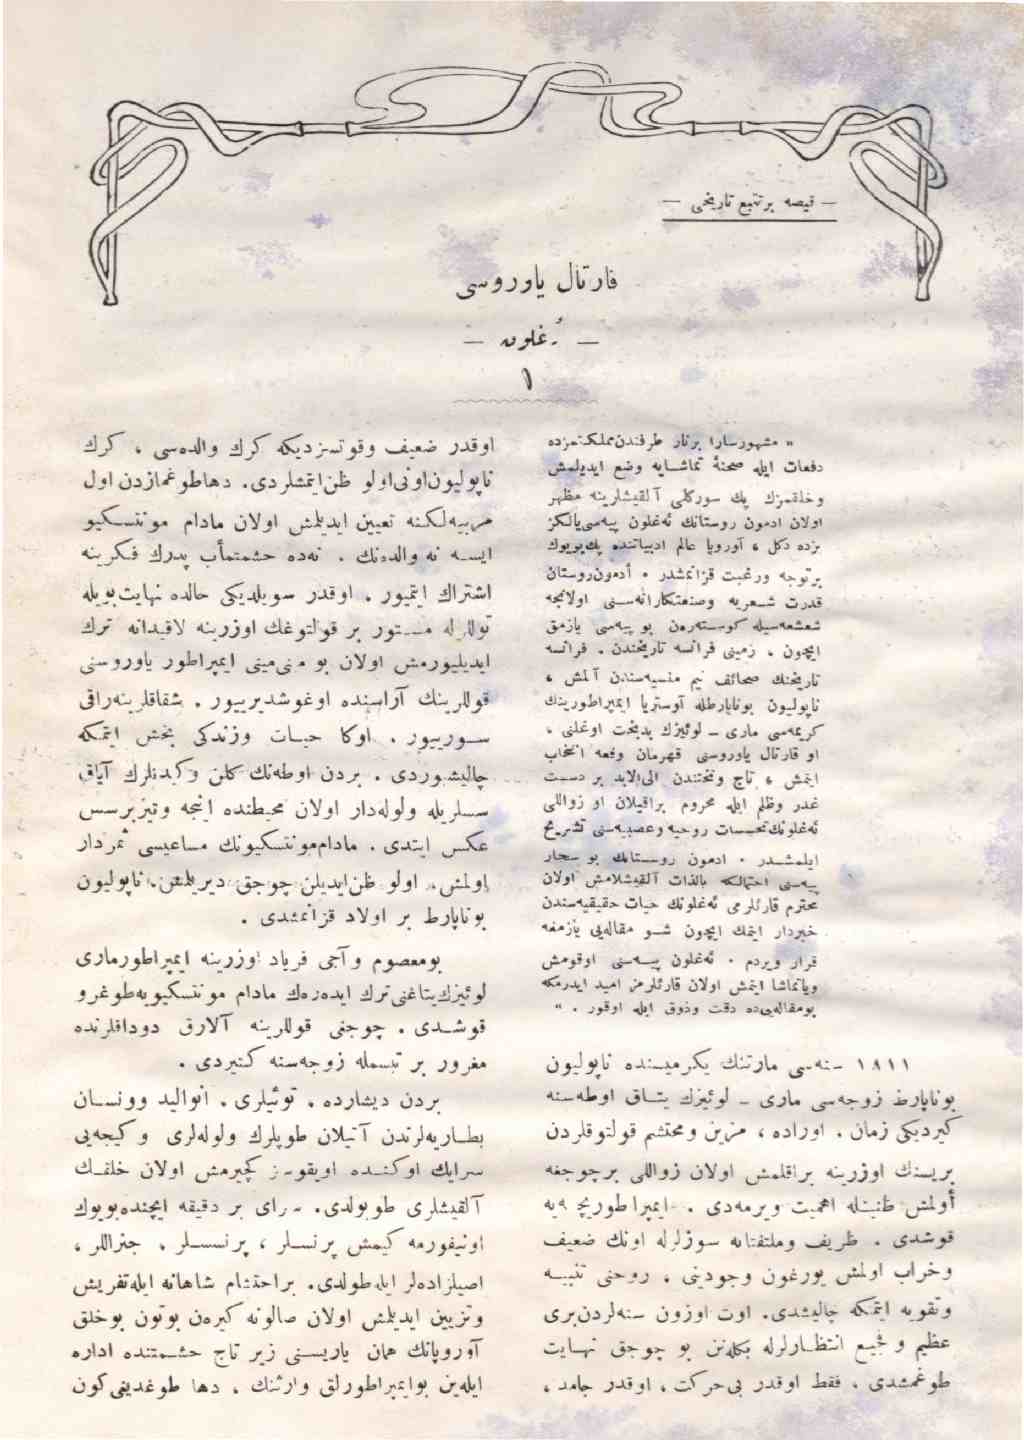 — قیصه برتتبع تاریخی —
قارتال یاوروسی
— ئه‌غلون —
١
« مشهور سارا برنار طرفندن مملكتمزده
دفعات ایله صحنهٔ تماشایه وضع ایدیلمش
وخلقمزك پك سورکلی آلقیشلرینه مظهر
اولان ادمون روستانك ئه‌غلون پیه‌سی یالكز
بزده دكل ، آوروپا عالم ادبیاتنده پك بویوك
برتوجه ورغبت قزانمشدر . أدمون روستان
قدرت شعریه وصنعتکارانه‌سنی اولانجه
شعشعه‌سیله کوستره‌ن بو پیه‌سی یازمق
ایچون ، زمینی فرانسه تاریخندن . فرانسه
تاریخنك صحائف نیم منسیه‌سندن آلمش ،
ناپولیون بوناپارطله آوستریا ایمپراطورینك
کریمه‌سی ماری ــ لوئیزك بدبخت اوغلنی ،
او قارتال یاوروسنی قهرمان وقعه انتخاب
ایتمش ، تاج وتختندن الی‌الابد بر دست
غدر وظلم ایله محروم براقیلان او زواللی
ئه‌غلونك تحسسات روحیه وعصبیه‌سنی تشریح
ایلمشدر . ادمون روستانك بو سحار
پیه‌سنی احتمالکه بالذات آلقیشلامش اولان
محترم قارئلرمی ئه‌غلونك حیات حقیقیه‌سندن
خبردار ایتمك ایچون شو مقاله‌یی یازمغه
قرار ویردم . ئه‌غلون پیه‌سنی اوقومش
ویاتماشا ایتمش اولان قارئلرمز امید ایدرمکه
بومقاله‌یی‌ده دقت وذوق ایله اوقور . »
١٨١١ سنه‌سی مارتنك یکرمیسنده ناپولیون
بوناپارط زوجه‌سی ماری ــ لوئیزك یتاق اوطه‌سنه
کیردیکی زمان . اوراده ، مزین ومحتشم قولتوقلردن
بریسنك اوزرینه براقلمش اولان زواللی برچوجغه
أولمش ظنیله اهمیت ویرمه‌دی . ایمپراطوریچه‌یه
قوشدی . ظریف وملتفتانه سوزلرله اونك ضعیف
وخراب اولمش یورغون وجودینی ، روحنی تنبیه
وتقویه ایتمکه چالیشدی . اوت اوزون سنه‌لردن‌بری
عظیم و فجیع انتظارلرله بکله‌نن بو چوجق نهایت
طوغمشدی ، فقط اوقدر بی‌حرکت ، اوقدر جامد ،
اوقدر ضعیف وقوتسزدیکه کرك والده‌سی ، کرك
ناپولیون‌اونی‌اولو ظن‌ایتمشلردی . دهاطوغمازدن اول
مربیه‌لکنه تعیین ایدیلمش اولان مادام مونتسکیو
ایسه نه والده‌نك . نه‌ده حشمتمأب پدرك فکرینه
اشتراك ایتمیور . اوقدر سویلدیکی حالده نهایت‌بویله
توللرله مستور بر قولتوغك اوزرینه لاقیدانه ترك
ایدیلیورمش اولان بو منی‌مینی ایمپراطور یاوروسنی
قوللرینك آراسنده اوغوشدیرییور . شقاقلرینه‌راقی
سورییور . اوکا حیات وزندکی بخش ایتمکه
چالیشوردی . بردن اوطه‌نك کلن وکیدنلرك آیاق
سسلریله ولوله‌دار اولان محیطنده اینجه وتیزبرسس
عکس ایتدی . مادام‌مونتسکیونك مساعیسی ثمردار
اولمش . اولو ظن‌ایدیلن چوجق دیریلمش . ناپولیون
بوناپارط بر اولاد قزانمشدی .
بومعصوم وآجی فریاد اوزرینه ایمپراطورماری
لوئیزك‌یتاغنی‌ترك ایده‌رك مادام مونتسکیویه‌طوغرو
قوشدی . چوجغی قوللرینه آلارق دوداقلرنده
مغرور بر تبسمله زوجه‌سنه کتیردی .
بردن دیشارده ، توئیلری . انوالید وونسان
بطاریه‌لرندن آتیلان طوپلرك ولوله‌لری وکیجه‌یی
سرایك اوکنده اویقوسز کچیرمش اولان خلقك
آلقیشلری طویولدی . سرای بر دقیقه ایچنده‌بویوك
اونیفورمه کیمش پرنسلر ، پرنسسلر ، جنراللر ،
اصیلزاده‌لر ایله‌طولدی . براحتشام شاهانه ایله‌تفریش
وتزیین ایدیلمش اولان صالونه کیره‌ن بوتون بوخلق
آوروپانك همان یاریسنی زیر تاج حشمتنده اداره
ایله‌ین بوایمپراطورلق وارثنك ، دها طوغدیغی‌کون